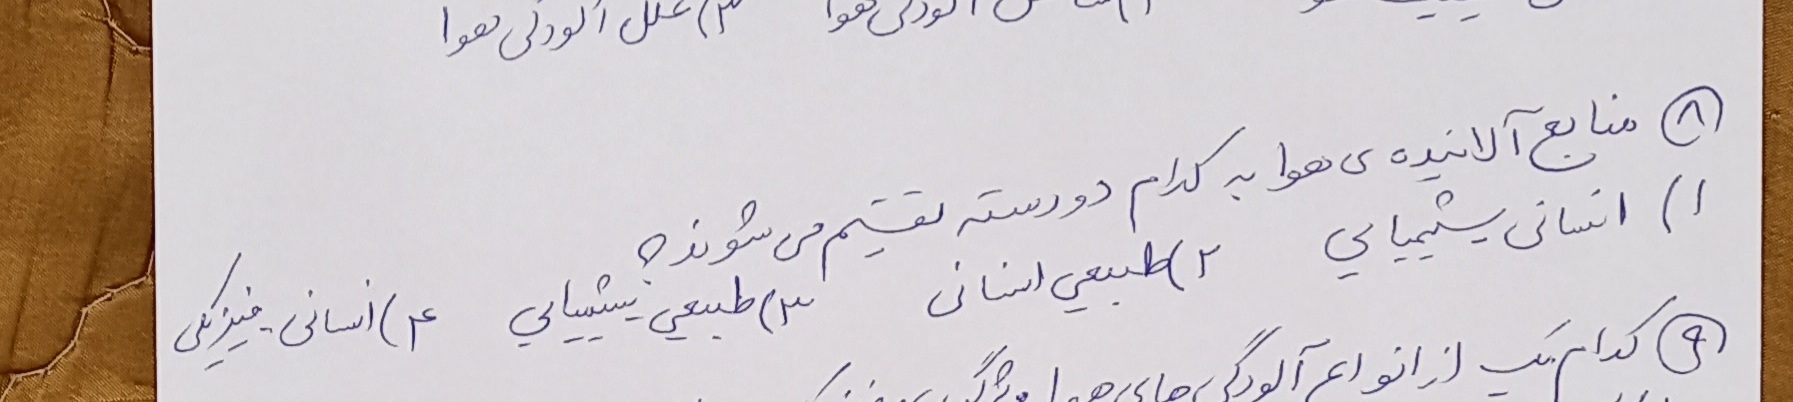 آلودگی هوا ۳) علل آلودگی هوا
۸) منابع آلاینده ی هوا به کدام دو دسته تقسیم می شوند؟
۱) انسانی شیمیایی ۲) طبیعی انسانی ۳) طبیعی شیمیایی ۴) انسانی - فیزیکی
۹) کدام یک از انواع آلودگی های هوا